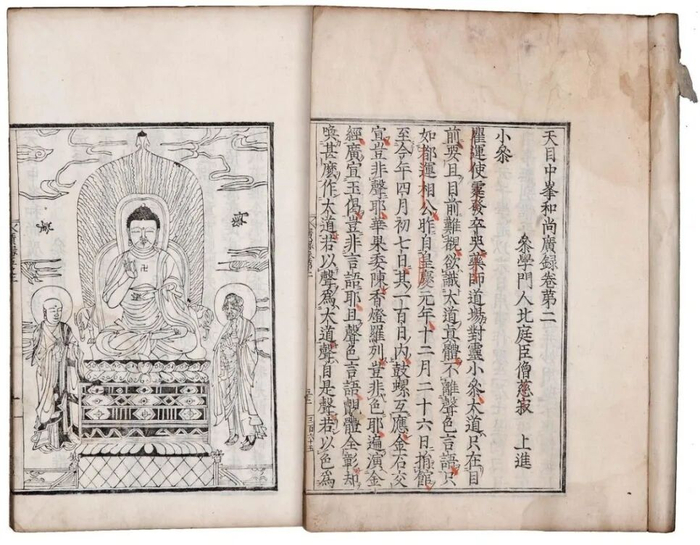 天目中峯和尚廣錄卷第二
叅學門人北庭臣僧慈寂 上進
小叅
瞿運使霆發卒哭藥師道場對靈小叅大道只在目
前要且目前難覩欲識大道真體不離聲色言語只
如都運相公昨自皇慶元年十二月二十六日捐館
至今年四月初七日其一百日內鼓螺互應金石交
宣豈非聲耶華果委陳香燈羅列豈非色耶遍演金
經廣宣玉偈豈非言語耶且聲色言語覿體全彰却
喚甚麼作大道若以聲為大道聲自是聲若以色為